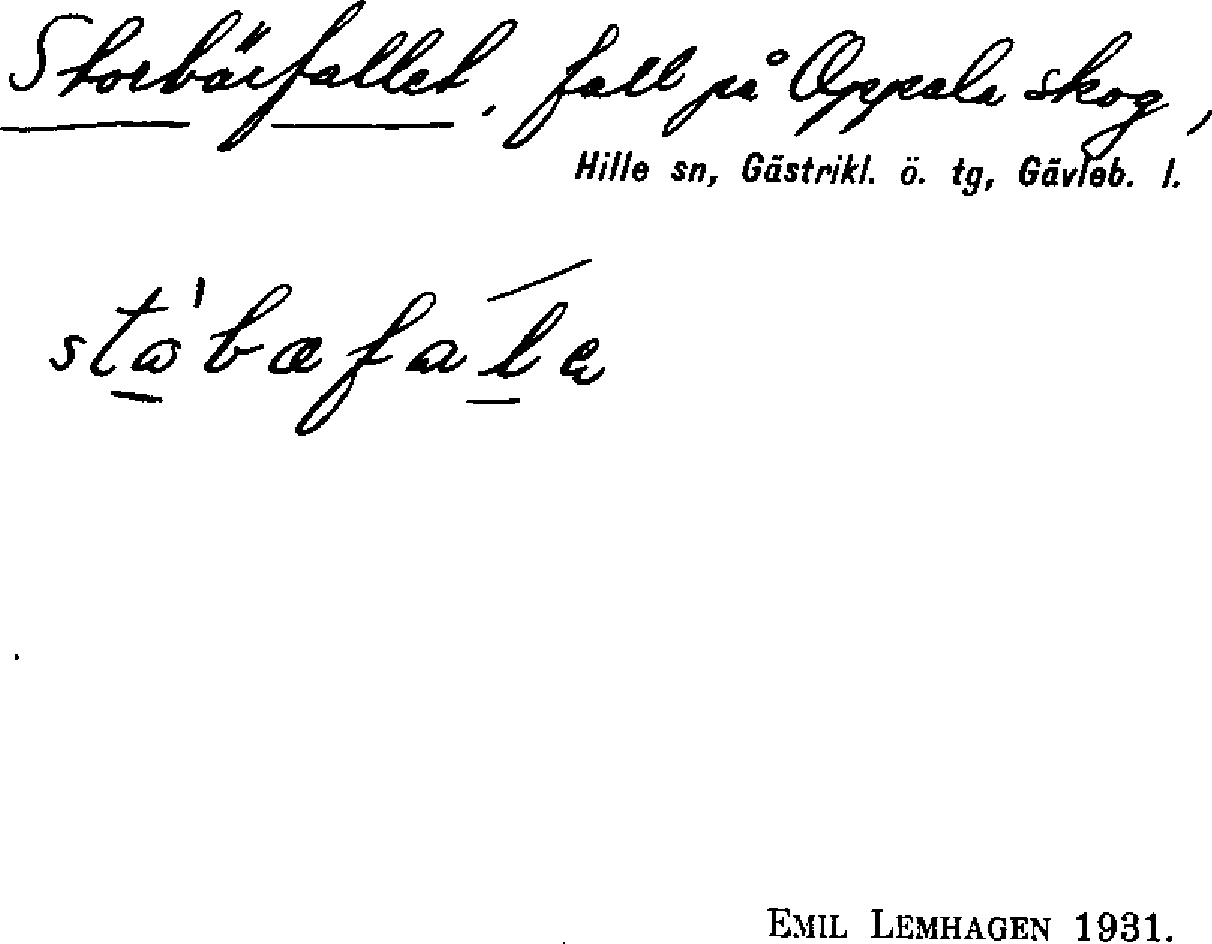 Storbärfallet, fall på Oppala skog,
Hille sn, Gästrikl. ö. tg, Gävleb. l.
EMIL LEMHAGEN 1931.